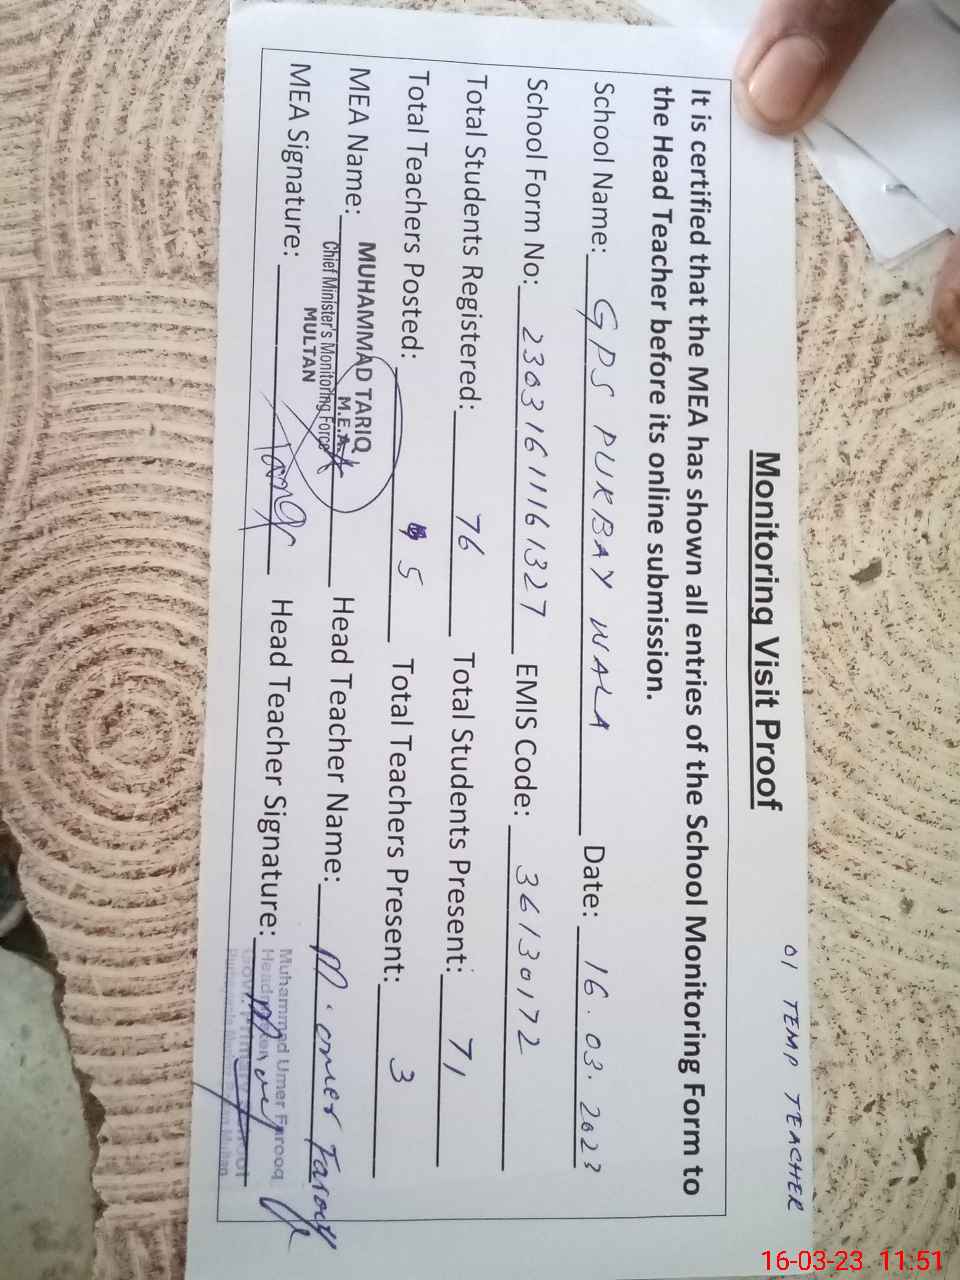 01 TEMP TEACHER
Monitoring Visit Proof
It is certified that the MEA has shown all entries of the School Monitoring Form to
the Head Teacher before its online submission.
School Name: GPS PURBAY WALA Date: 16.03.2023
School Form No: 23031611161327 EMIS Code: 36130172
Total Students Registered: 76 Total Students Present: 71
Total Teachers Posted: 5 Total Teachers Present: 3
MEA Name: MUHAMMAD TARIQ Head Teacher Name: M. Omer Farooq
M.E.A.
Chief Minister's Monitoring Force
MULTAN
MEA Signature: Tariq Head Teacher Signature:
Muhammad Umer Farooq
16-03-23 11:51